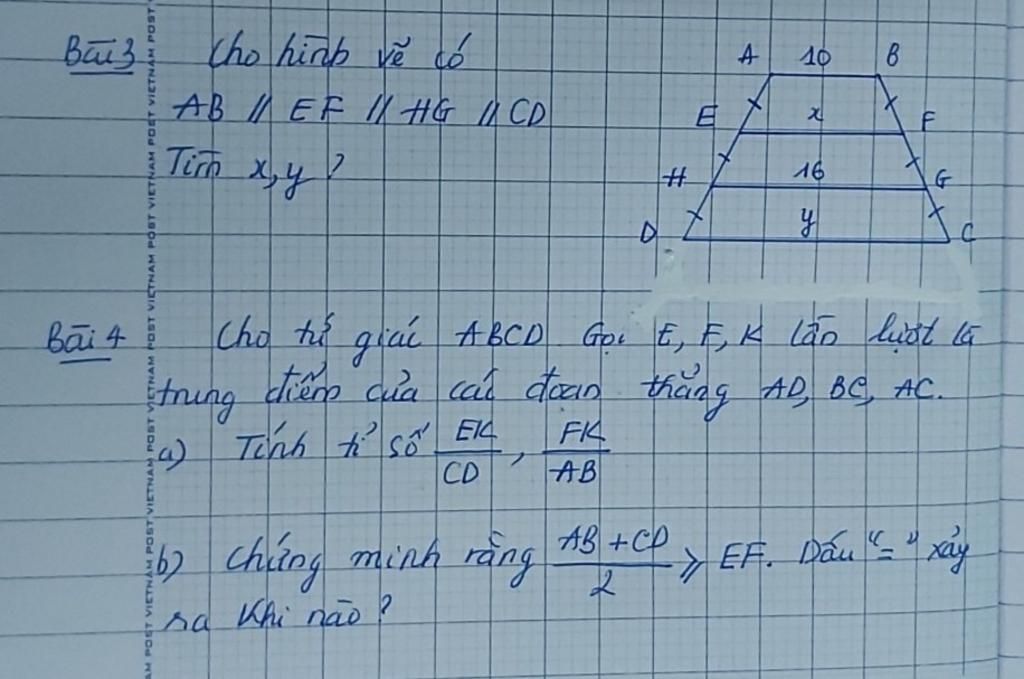 Bài 3 Cho hình vẽ có
AB // EF // HG // CD
Tìm x, y ?
A 10 B
E x F
H 16 G
D y C
Bài 4 Cho tứ giác ABCD Gọi E, F, K lần lượt là
trung điểm của các đoạn thẳng AD, BC, AC.
a) Tính tỉ số EK/CD , FK/AB
b) Chứng minh rằng (AB + CD)/2 ⩾ EF. Dấu "=" xảy
ra khi nào ?
VIETNAM POST VIETNAM POST VIETNAM POST VIETNAM POST VIETNAM POST VIETNAM POST